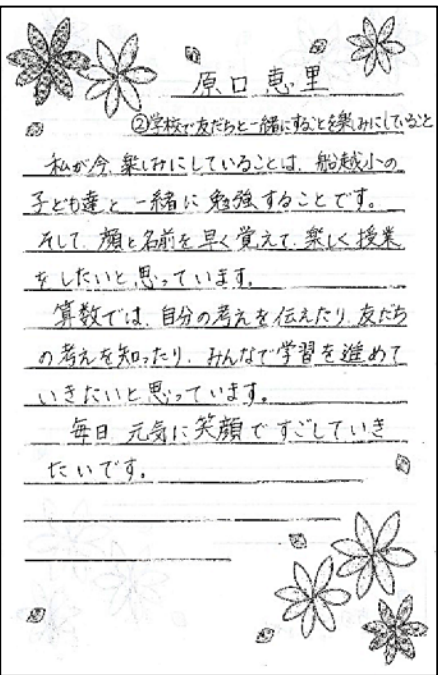 原口恵里
②学校で友だちと一緒にすることを楽しみにしていること
私が今、楽しみにしていることは、船越小の
子ども達と一緒に勉強することです。
そして、顔と名前を早く覚えて、楽しく授業
をしたいと思っています。
算数では、自分の考えを伝えたり、友だち
の考えを知ったり、みんなで学習を進めて
いきたいと思っています。
毎日、元気に笑顔ですごしていき
たいです。